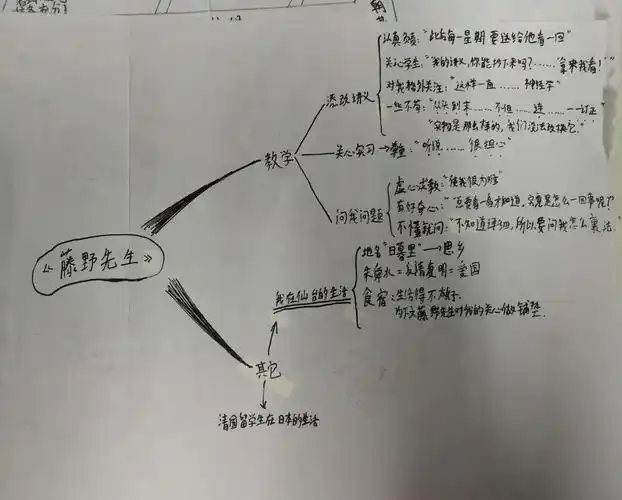 《藤野先生》
教学
添改讲义
认真负责："此后每一星期要送给他看一回"
关心学生："我的讲义，你能抄下来吗？……拿来我看！"
对我格外关注："这样一直……神经学"
一丝不苟："从头到末……不但……连……一一订正"
"实物是那么样的，我们没法改换它。"
关心实习→"听说……很担心"
问我问题
虚心求教："使我很为难"
有好奇心："总要看一看才知道，究竟是怎么一回事呢？"
不懂就问："不知道详细，所以要问我怎么裹法.
其它
我在仙台的生活
地名"日暮里"→思乡
朱舜水=反清复明=爱国
食宿：生活得不太好.
为下文藤野先生对我的关心做铺垫.
清国留学生在日本的生活